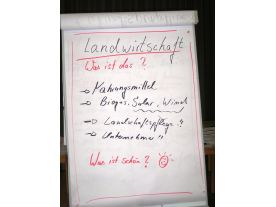 Landwirtschaft
Was ist das?
→ Nahrungsmittel
→ Biogas, Solar, Wind
→ Landschaftspflege
→ Unternehmer
Was ist schön?